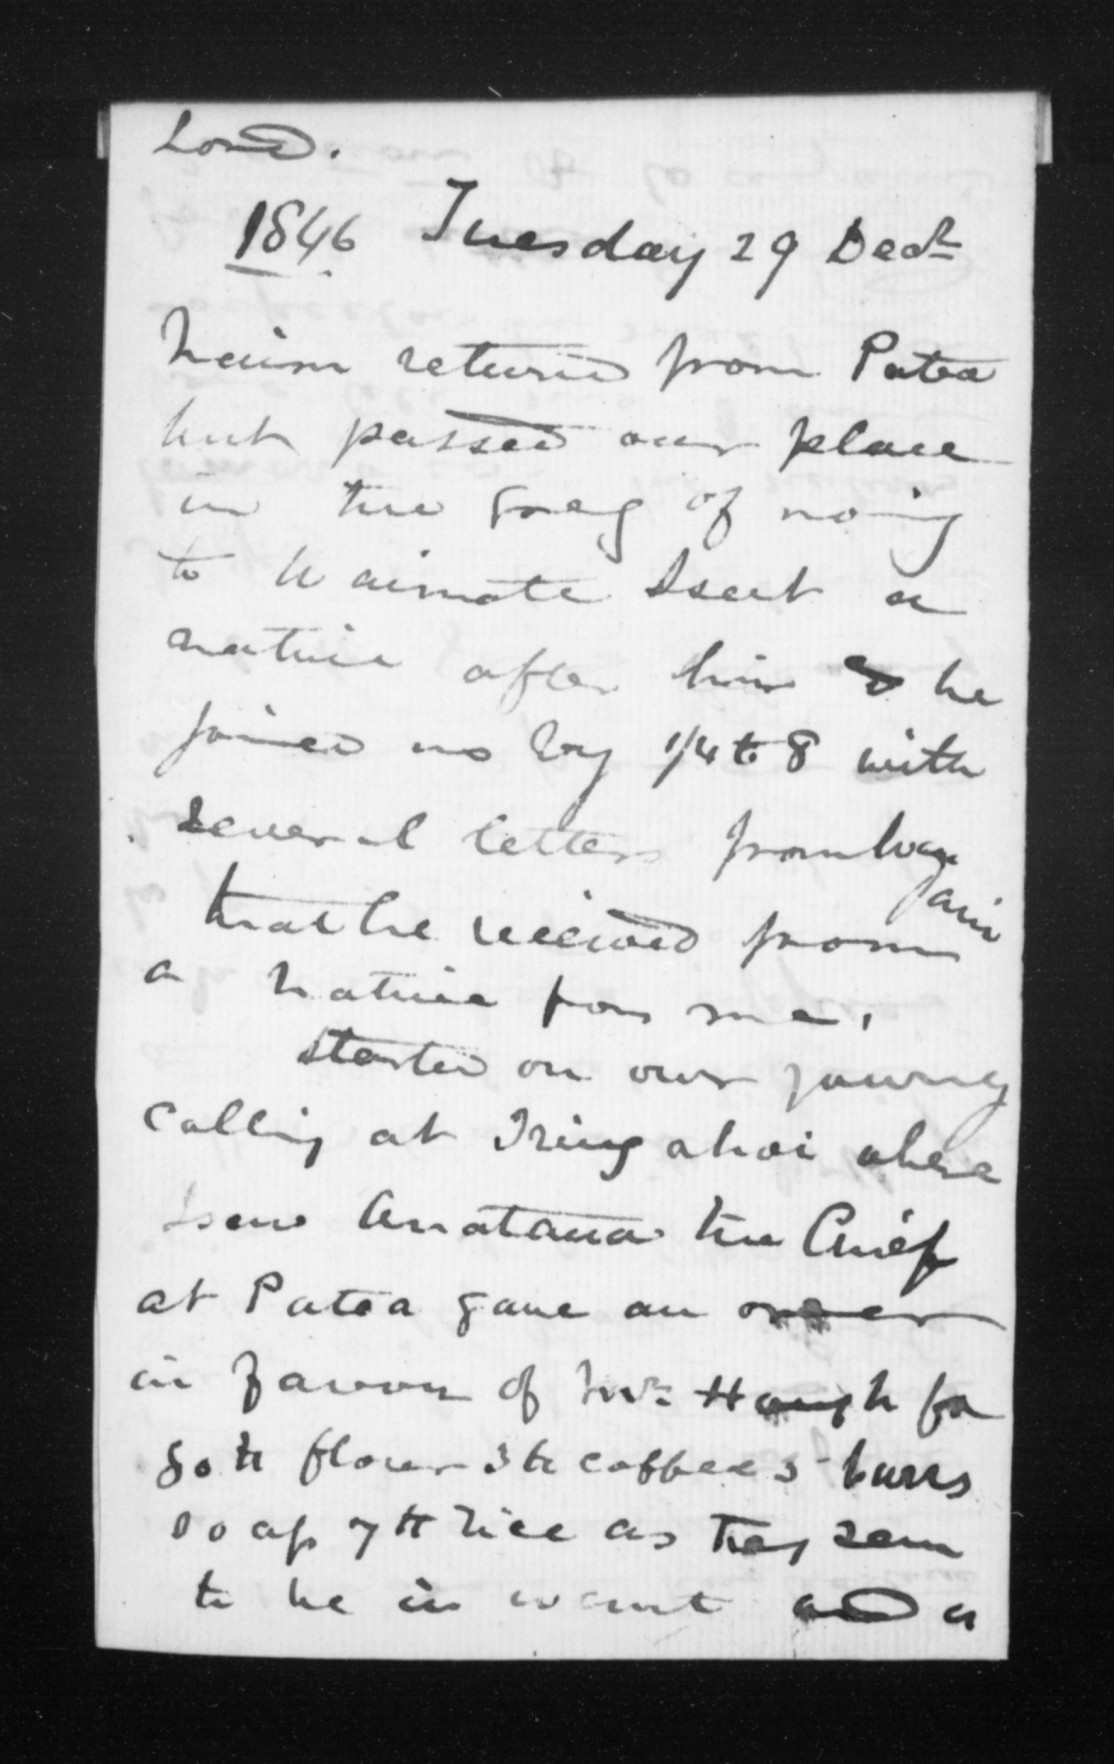 Lord.
1846 Tuesday 29 Decr
Naim returned from Patea
but passed our place
in the greg of noing
to Waimate I sent a
native after him & he
joined us by 1/4 to 8 with
several letters from
that he received from
a native for me.
Started on our journey
calling at where
I saw the Chief
at Patea gave an order
in favour of Mr. Hough for
flower coffee 3 barrs
soap 7 lb rice as they seem
to be in want and a